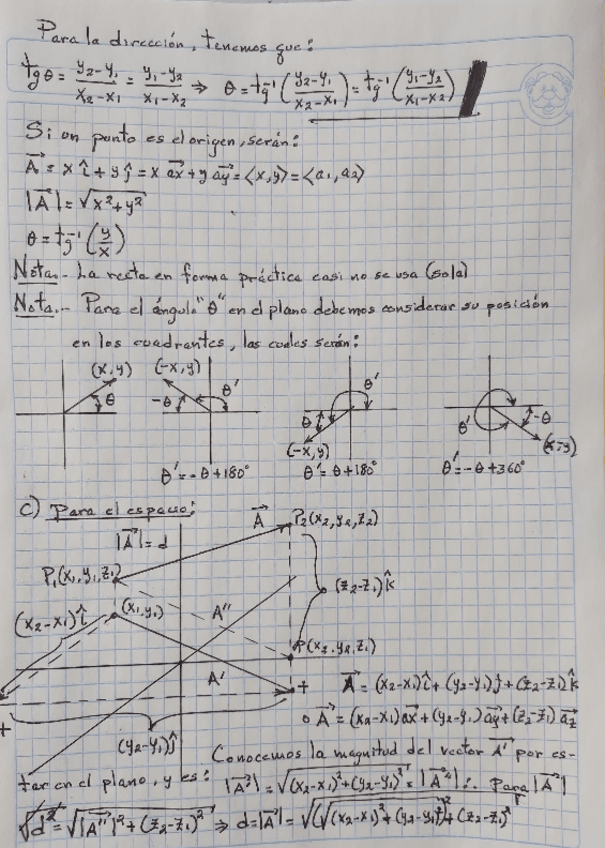 Para la dirección, tenemos que:
tg θ = (y₂-y₁)/(x₂-x₁) = (y₁-y₂)/(x₁-x₂) ⇒ θ = tg⁻¹((y₂-y₁)/(x₂-x₁)) = tg⁻¹((y₁-y₂)/(x₁-x₂))
Si un punto es el origen, serán:
A⃗ = x î + y ĵ = x a⃗x + y a⃗y = <x,y> = <a₁,a₂>
|A⃗| = √(x²+y²)
θ = tg⁻¹(y/x)
Nota.- La recta en forma práctica casi no se usa (sola)
Nota.- Para el ángulo "θ" en el plano debemos considerar su posición
en los cuadrantes, las cuales serán:
(x,y) (-x,y) θ' θ'
θ -θ θ θ' -θ
(-x,y) (x,-y)
θ' = -θ+180° θ' = θ+180° θ' = -θ+360°
c) Para el espacio:
A⃗ P₂(x₂,y₂,z₂)
|A⃗| = d
P₁(x₁,y₁,z₁)
(z₂-z₁)k̂
(x₂-x₁)î (x₁,y₁) A''
P(x₂,y₂,z₁)
A'
A⃗ = (x₂-x₁)î + (y₂-y₁)ĵ + (z₂-z₁)k̂
+ +
o A⃗ = (x₂-x₁)a⃗x + (y₂-y₁)a⃗y + (z₂-z₁)a⃗z
(y₂-y₁)ĵ
Conocemos la magnitud del vector A⃗' por es-
tar en el plano, y es: |A⃗'| = √((x₂-x₁)²+(y₂-y₁)²) = |A⃗''| ∴ Para |A⃗|
√d² = √(|A⃗''|²+(z₂-z₁)²) ⇒ d=|A⃗| = √((√((x₂-x₁)²+(y₂-y₁)²))²+(z₂-z₁)²)